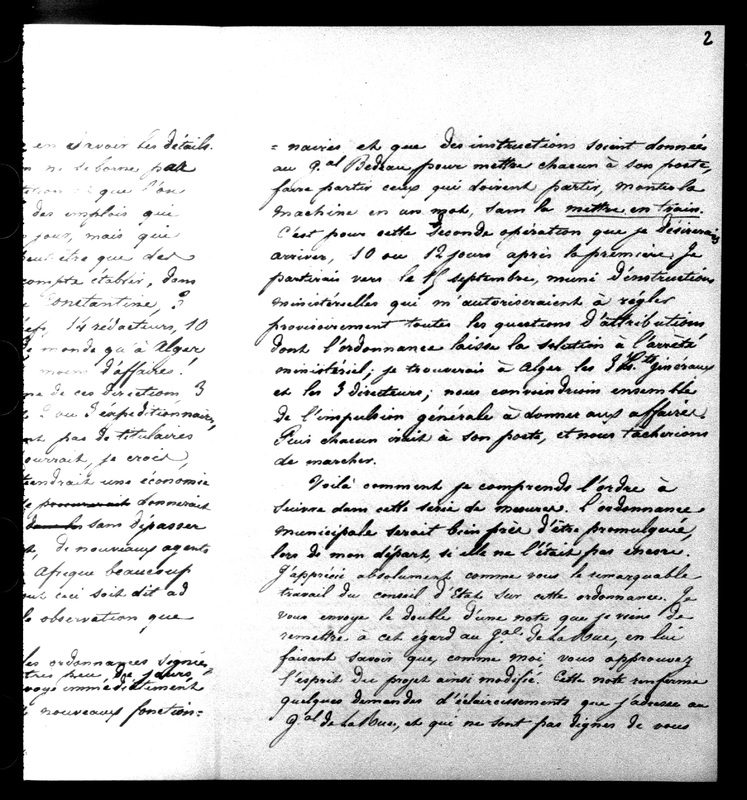 2
en savoir les détails.
ne se borne pas
que l'on
des emplois qui
jour, mais qui
peut être que des
compte établir, dans
Constantine, 3
14 rédacteurs, 10
monde qu'à Alger
moins d'affaires!
de ces direction 3
2 ou 3 expéditionnaires,
pas de titulaires
pourrait, je crois,
tiendrait une économie
procurerait donnerait
sans dépasser
de nouveaux agents
Afrique beaucoup
ceci soit dit ad
observation que
les ordonnances signées,
très peu de jours,
immédiatement
nouveaux fonction=
= naires et que des instructions soient données
au g.al Bedeau pour mettre chacun à son poste,
faire partir ceux qui doivent partir, monter la
machine en un mot, sans la mettre en train.
C'est pour cette seconde opération que je désirerais
arriver, 10 ou 12 jours après la première. Je
partirais vers le 15 septembre, muni d'instructions
ministérielles qui m'autoriseraient à régler
provisoirement toutes les questions d'attributions
dont l'ordonnance laisse la solution à l'arrêté
ministériel; je trouverais à Alger les 3 Lts généraux
et les 3 directeurs; nous conviendrions ensemble
de l'impulsion générale à donner aux affaires.
Puis chacun irait à son poste, et nous tâcherions
de marcher.
Voilà comment je comprends l'ordre à
suivre dans cette série de mesures. L'ordonnance
municipale serait bien près d'être promulguée,
lors de mon départ, si elle ne l'était pas encore.
J'apprécie absolument comme vous le remarquable
travail du conseil d'Etat sur cette ordonnance. Je
vous envoye le double d'une note que je viens de
remettre à cet égard au g.al de La Rue, en lui
faisant savoir que, comme moi vous approuvez
l'esprit du projet ainsi modifié. Cette note renferme
quelques demandes d'éclaircissements que j'adresse au
g.al de La Rue, et qui ne sont pas dignes de vous